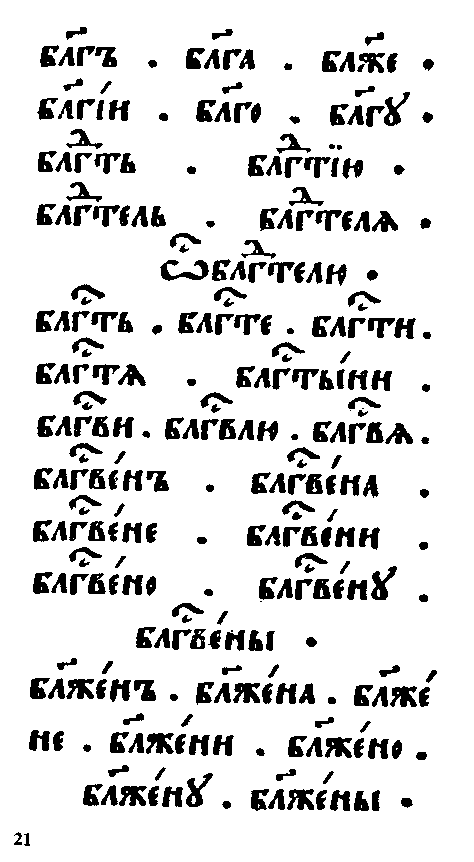 бл҃гъ . бл҃га . бл҃же .
бл҃гі́и . бл҃го . бл҃гꙋ .
блгⷣть . блгⷣтїю .
блгⷣтель . блгⷣтелѧ .
ѿблгⷣтелю .
блгⷭ҇ть . блгⷭ҇те . блгⷭ҇ти .
блгⷭ҇тѧ . блгⷭ҇ты́ни .
блгⷭ҇ви . блгⷭ҇влю . блгⷭ҇вѧ .
блгⷭ҇ве́нъ . блгⷭ҇ве́на .
блгⷭ҇ве́не . блгⷭ҇ве́ни .
блгⷭ҇ве́но . блгⷭ҇ве́нꙋ .
блгⷭ҇ве́ны .
бл҃же́нъ . бл҃же́на . бл҃же́
не . бл҃же́ни . бл҃же́но .
бл҃же́нꙋ . бл҃же́ны .
21